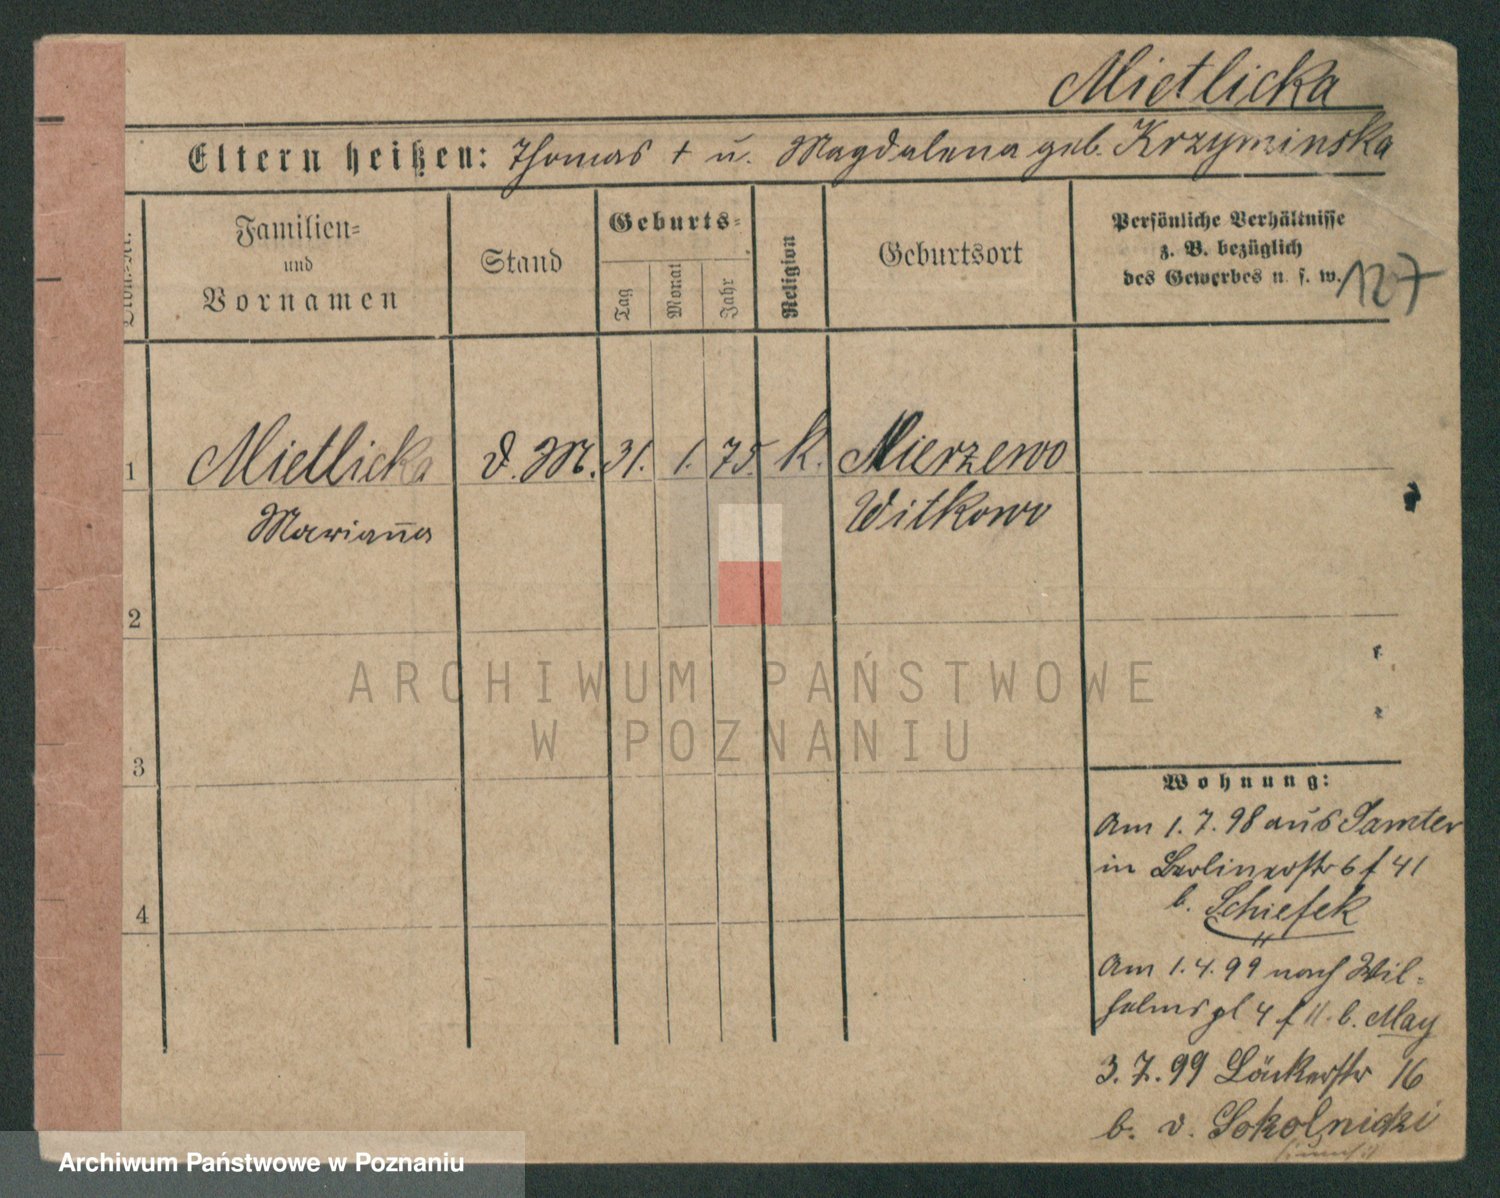 Mietlicka
Eltern heißen: Thomas + u. Magdalena geb. Krzyminska
Lfde.-Nr.
Familien-
und
Vornamen
Stand
Geburts-
Tag
Monat
Jahr
Religion
Geburtsort
Persönliche Verhältnisse
z. B. bezüglich
des Gewerbes u. s. w.
127
1
Mietlicka
d. M.
31.
1.
75.
K.
Mierzewo
Marianna
Witkowo
2
ARCHIWUM PAŃSTWOWE
W POZNANIU
3
4
Wohnung:
Am 1. 7. 98 aus Samter
in Berlinerstr 6 f 41
b. Schiefek
Am 1. 4. 99 nach Wil-
helmspl 4 f II. b. May
3. 7. 99 Bäckerstr 16
b. v. Sokolnicki
Archiwum Państwowe w Poznaniu